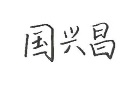 国兴昌